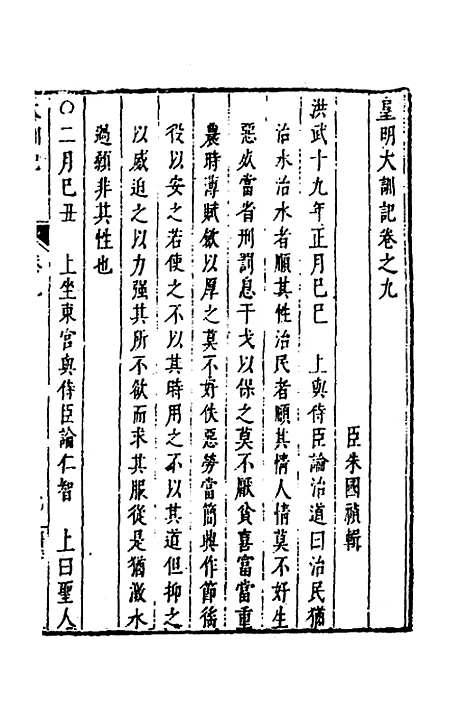 皇明大訓記卷之九
臣朱國禎輯
洪武十九年正月己巳　上與侍臣論治道曰治民猶
治水治水者順其性治民者順其情人情莫不好生
惡死當省刑罰息干戈以保之莫不厭貧喜富當重
農時薄賦斂以厚之莫不好佚惡勞當簡興作節徭
役以安之若使之不以其時用之不以其道但抑之
以威迫之以力強其所不欲而求其服從是猶激水
過顙非其性也
○二月己丑　上坐東宮與侍臣論仁智　上曰聖人